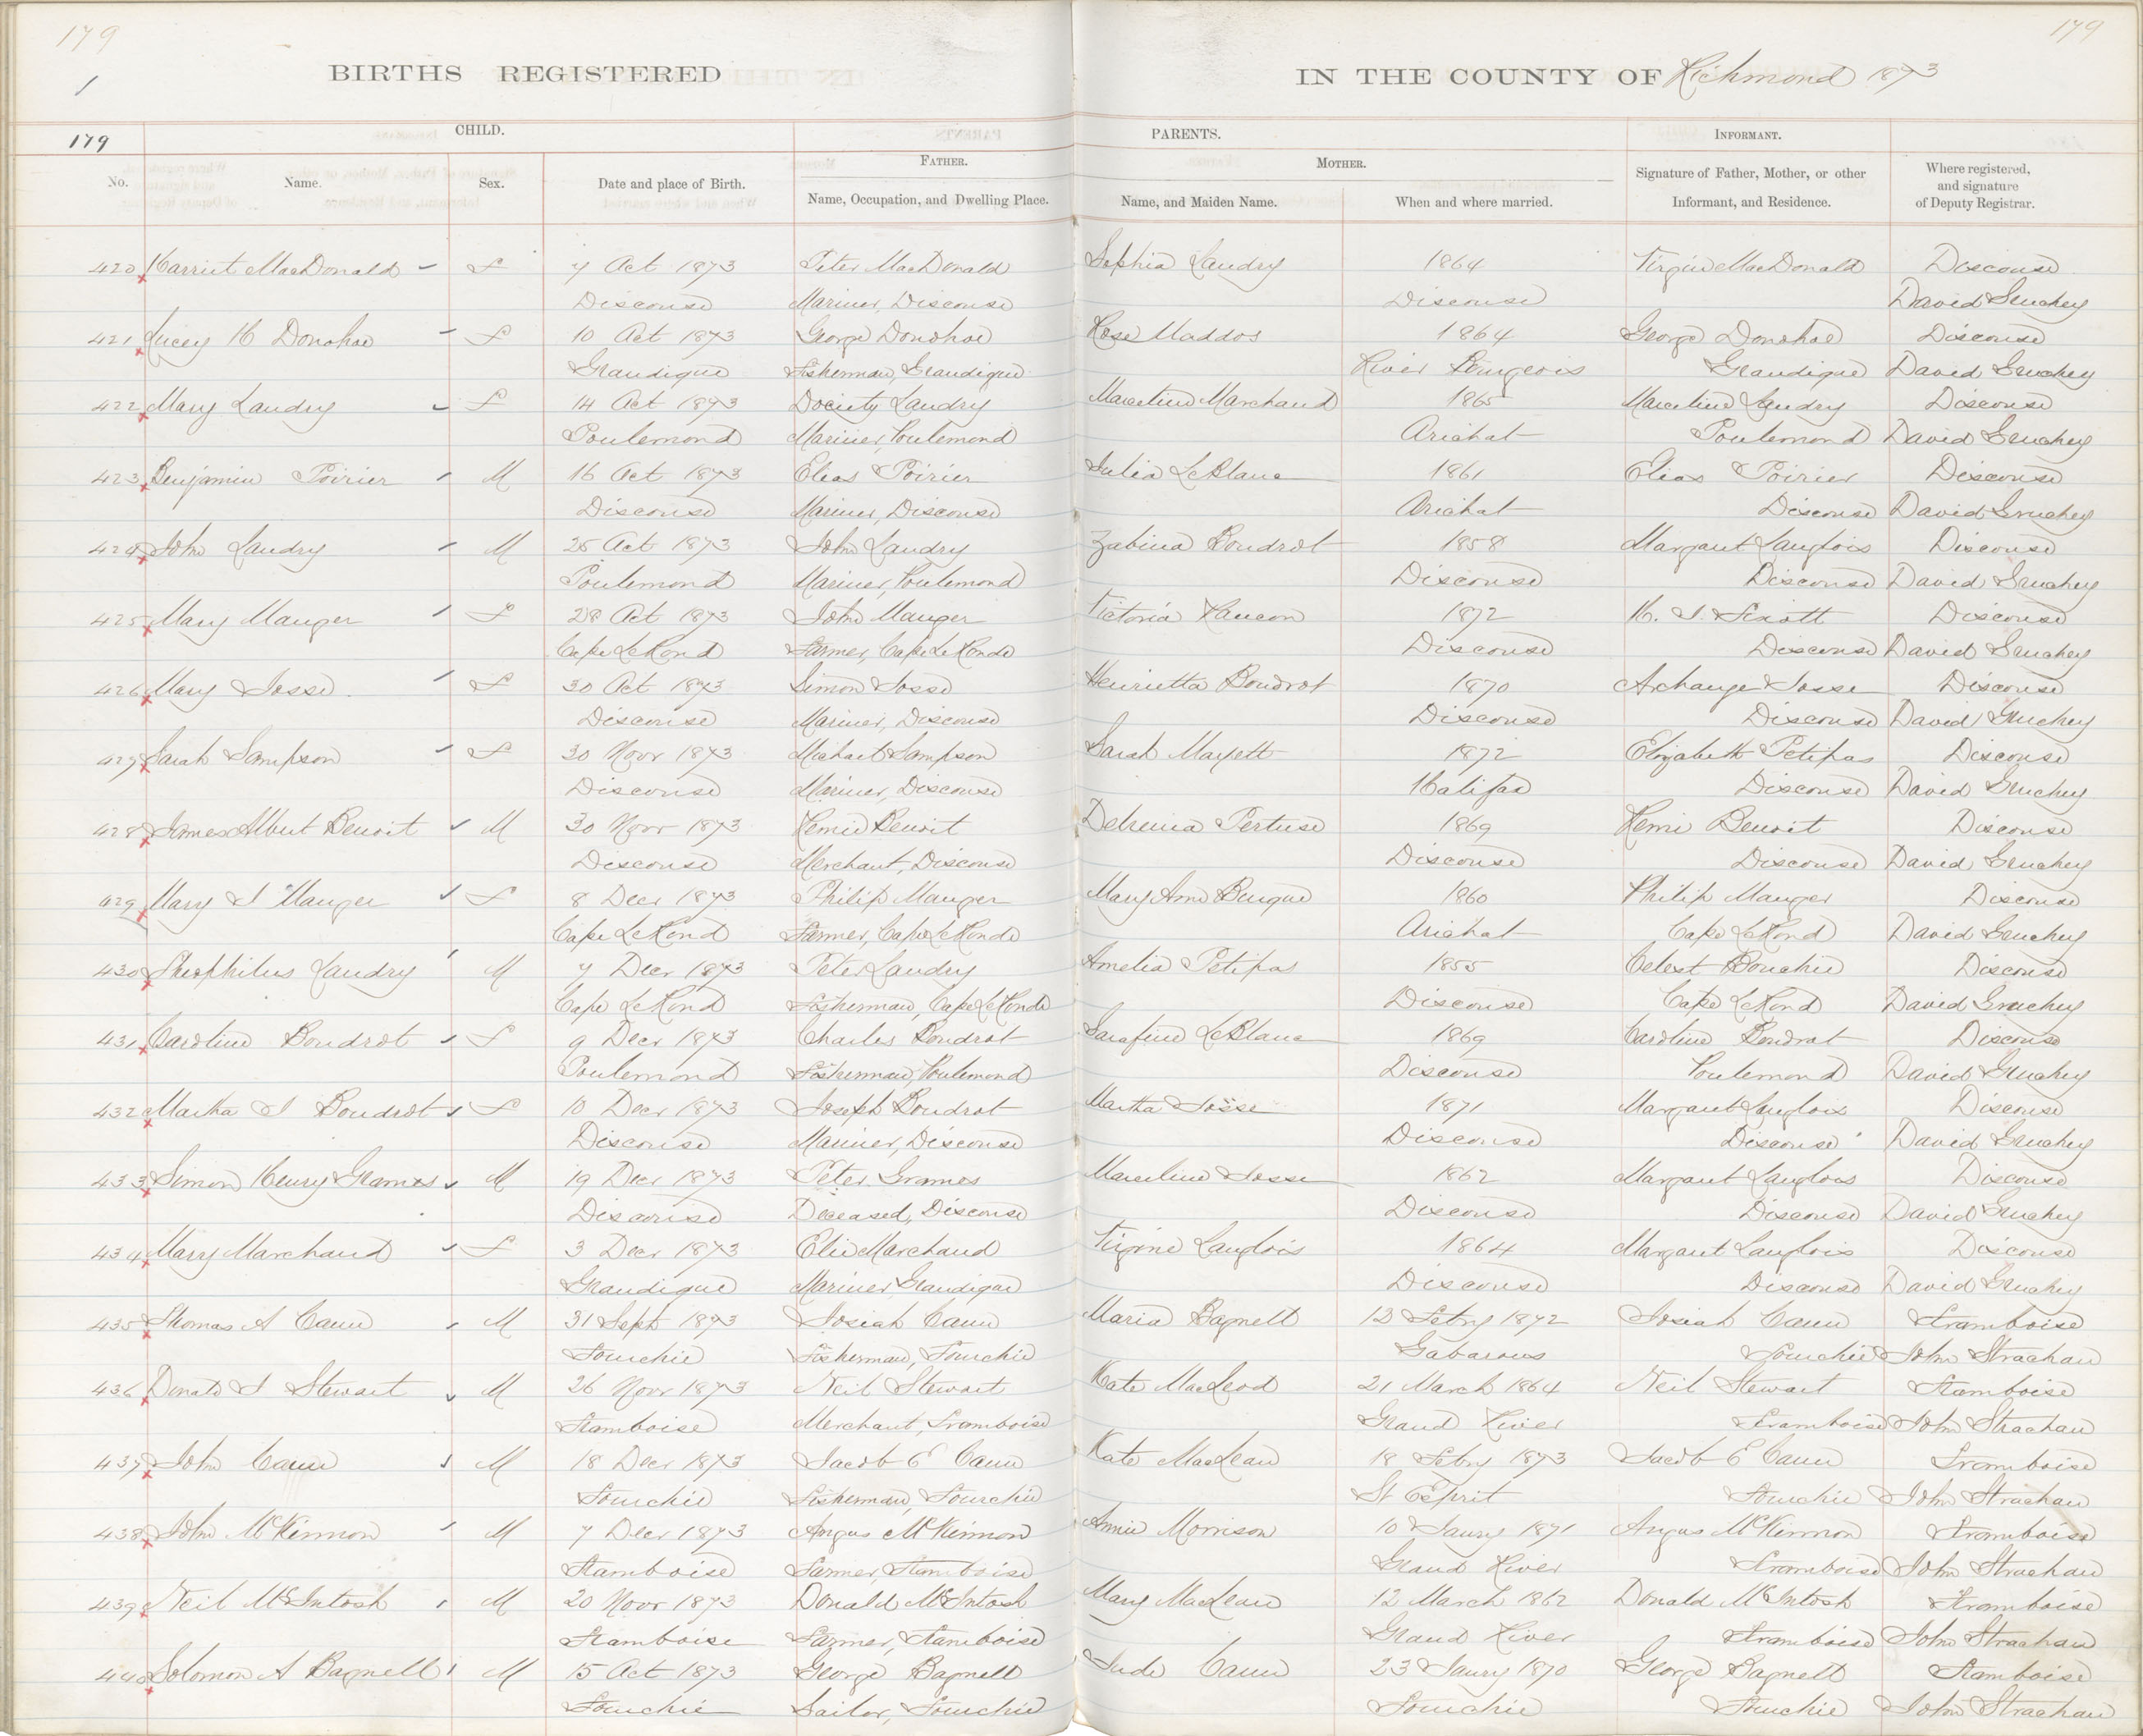 179
179
1
BIRTHS REGISTERED IN THE COUNTY OF Richmond 1873
179
CHILD. PARENTS. INFORMANT.
FATHER. MOTHER.
No. Name. Sex. Date and place of Birth. Name, Occupation, and Dwelling Place. Name, and Maiden Name. When and where married. Signature of Father, Mother, or other Informant, and Residence. Where registered, and signature of Deputy Registrar.
420 Harriet MacDonald f 7 Oct 1873 Peter MacDonald Sophia Landry 1864 Virginie MacDonald Discouse
Discouse Mariner, Discouse Discouse David Gruchey
421 Lucey H Donohoe f 10 Oct 1873 George Donohoe Rose Maddos 1864 George Donohoe Discouse
Grandique Fisherman, Grandique River Bourgeois Grandique David Gruchey
422 Mary Landry f 14 Oct 1873 Landry Marceline Marchand 1865 Marceline Landry Discouse
Poulemond Mariner, Poulemond Arichat Poulemond David Gruchey
423 Benjamin Poirier M 16 Oct 1873 Elias Poirier Julia LeBlanc 1861 Elias Poirier Discouse
Discouse Mariner, Discouse Arichat Discouse David Gruchey
424 John Landry M 25 Oct 1873 John Landry Zabina Boudrot 1858 Margaret Langlois Discouse
Poulemond Mariner, Poulemond Discouse Discouse David Gruchey
425 Mary Mauger f 28 Oct 1873 John Mauger Victoria 1872 Discouse
Cape LeRond Farmer, Cape LeRonde Discouse Discouse David Gruchey
426 Mary Josse f 30 Oct 1873 Simon Josse Henrietta Boudrot 1870 Archange Josse Discouse
Discouse Mariner, Discouse Discouse Discouse David Gruchey
427 Sarah Sampson f 30 Novr 1873 Michael Sampson Sarah 1872 Elizabeth Petipas Discouse
Discouse Mariner, Discouse Halifax Discouse David Gruchey
428 James Albert Benoit M 30 Novr 1873 Remie Benoit Pertuse 1869 Remi Benoit Discouse
Discouse Merchant, Discouse Discouse Discouse David Gruchey
429 Mary J Mauger f 8 Decr 1873 Philip Mauger Mary Ann 1860 Philip Mauger Discouse
Cape LeRond Farmer, Cape LeRonde Arichat Cape LeRond David Gruchey
430 Theophilus Landry M 7 Decr 1873 Peter Landry Amelia Petipas 1855 Celest Bouchie Discouse
Cape LeRond Fisherman, Cape LeRonde Discouse Cape LeRond David Gruchey
431 Caroline Boudrot f 9 Decr 1873 Charles Boudrot Sarafine LeBlanc 1869 Caroline Boudrot Discouse
Poulemond Fisherman, Poulemond Discouse Poulemond David Gruchey
432 Martha J Boudrot f 10 Decr 1873 Joseph Boudrot Martha Josse 1871 Margaret Langlois Discouse
Discouse Mariner, Discouse Discouse Discouse David Gruchey
433 Simon Henry Grames M 19 Decr 1873 Peter Grames Marceline Josse 1862 Margaret Langlois Discouse
Discouse Deceased, Discouse Discouse Discouse David Gruchey
434 Mary Marchand f 3 Decr 1873 Elie Marchand Virginie Langlois 1864 Margaret Langlois Discouse
Grandique Mariner Grandique Discouse Discouse David Gruchey
435 Thomas A Cann M 31 Sept 1873 Josiah Cann Maria Bagnell 13 Febry 1872 Josiah Cann Framboise
Fourchie Fisherman, Fourchie Gabarous Fourchie John Strachan
436 Donald J Stewart M 26 Novr 1873 Neil Stewart Kate MacLeod 21 March 1864 Neil Stewart Framboise
Framboise Merchant, Framboise Grand River Framboise John Strachan
437 John Cann M 18 Decr 1873 Jacob E Cann Kate MacLean 18 Febry 1873 Jacob E Cann Framboise
Fourchie Fisherman, Fourchie St Esprit Fourchie John Strachan
438 John McKinnon M 7 Decr 1873 Angus McKinnon Annie Morrison 10 Janry 1871 Angus McKinnon Framboise
Framboise Farmer, Framboise Grand River Framboise John Strachan
439 Neil McIntosh M 20 Novr 1873 Donald McIntosh Mary MacLean 12 March 1862 Donald McIntosh Framboise
Framboise Farmer, Framboise Grand River Framboise John Strachan
440 Solomon A Bagnell M 15 Oct 1873 George Bagnell Jude Cann 23 Janry 1870 George Bagnell Framboise
Fourchie Sailor, Fourchie Fourchie Fourchie John Strachan